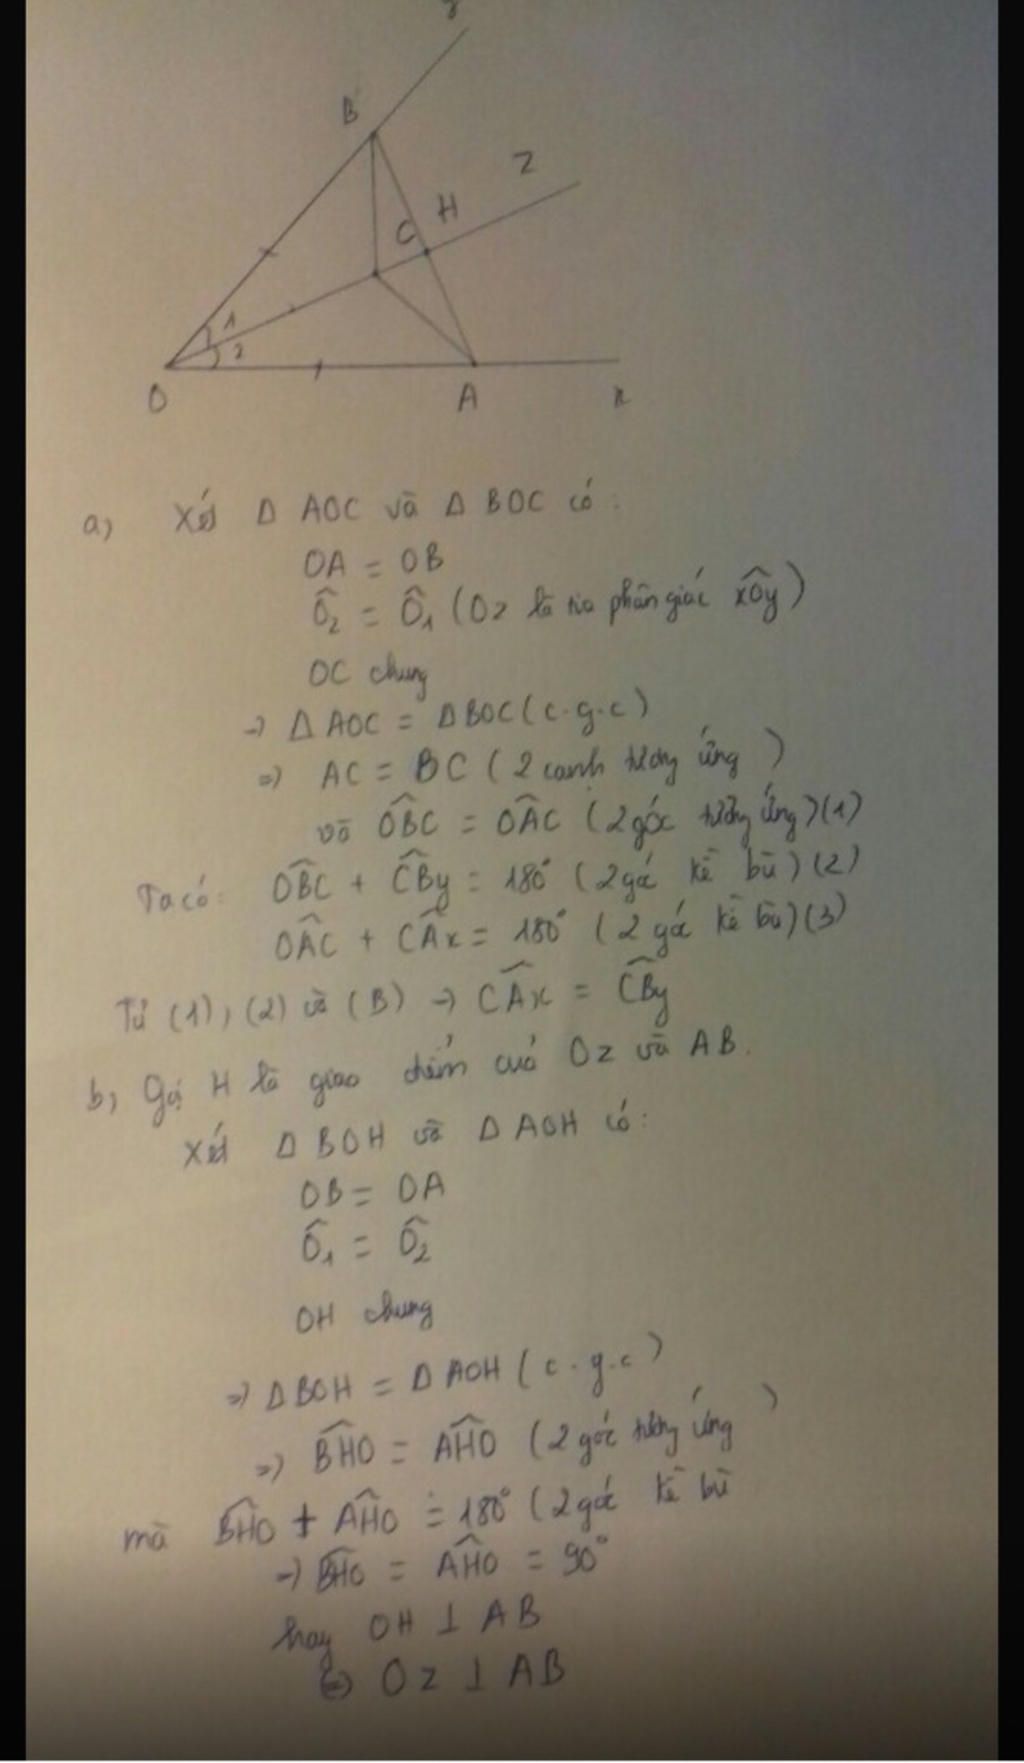 y
B
Z
H
C
1
2
O
A
x
a, Xét Δ AOC và Δ BOC có:
OA = OB
Ô₂ = Ô₁ (Oz là tia phân giác xÔy)
OC chung
→ Δ AOC = Δ BOC (c.g.c)
=) AC = BC (2 cạnh tương ứng)
và OB̂C = OÂC (2 góc tương ứng) (1)
Ta có: OB̂C + CB̂y = 180° (2 góc kề bù) (2)
OÂC + CÂx = 180° (2 góc kề bù) (3)
Từ (1), (2) và (B) → CÂx = CB̂y
b, Gọi H là giao điểm của Oz và AB.
Xét Δ BOH và Δ AOH có:
OB = OA
Ô₁ = Ô₂
OH chung
=) Δ BOH = Δ AOH (c.g.c)
=) BĤO = AĤO (2 góc tương ứng)
mà BĤO + AĤO = 180° (2 góc kề bù
→ BĤO = AĤO = 90°
hay OH ⊥ AB
(=) Oz ⊥ AB